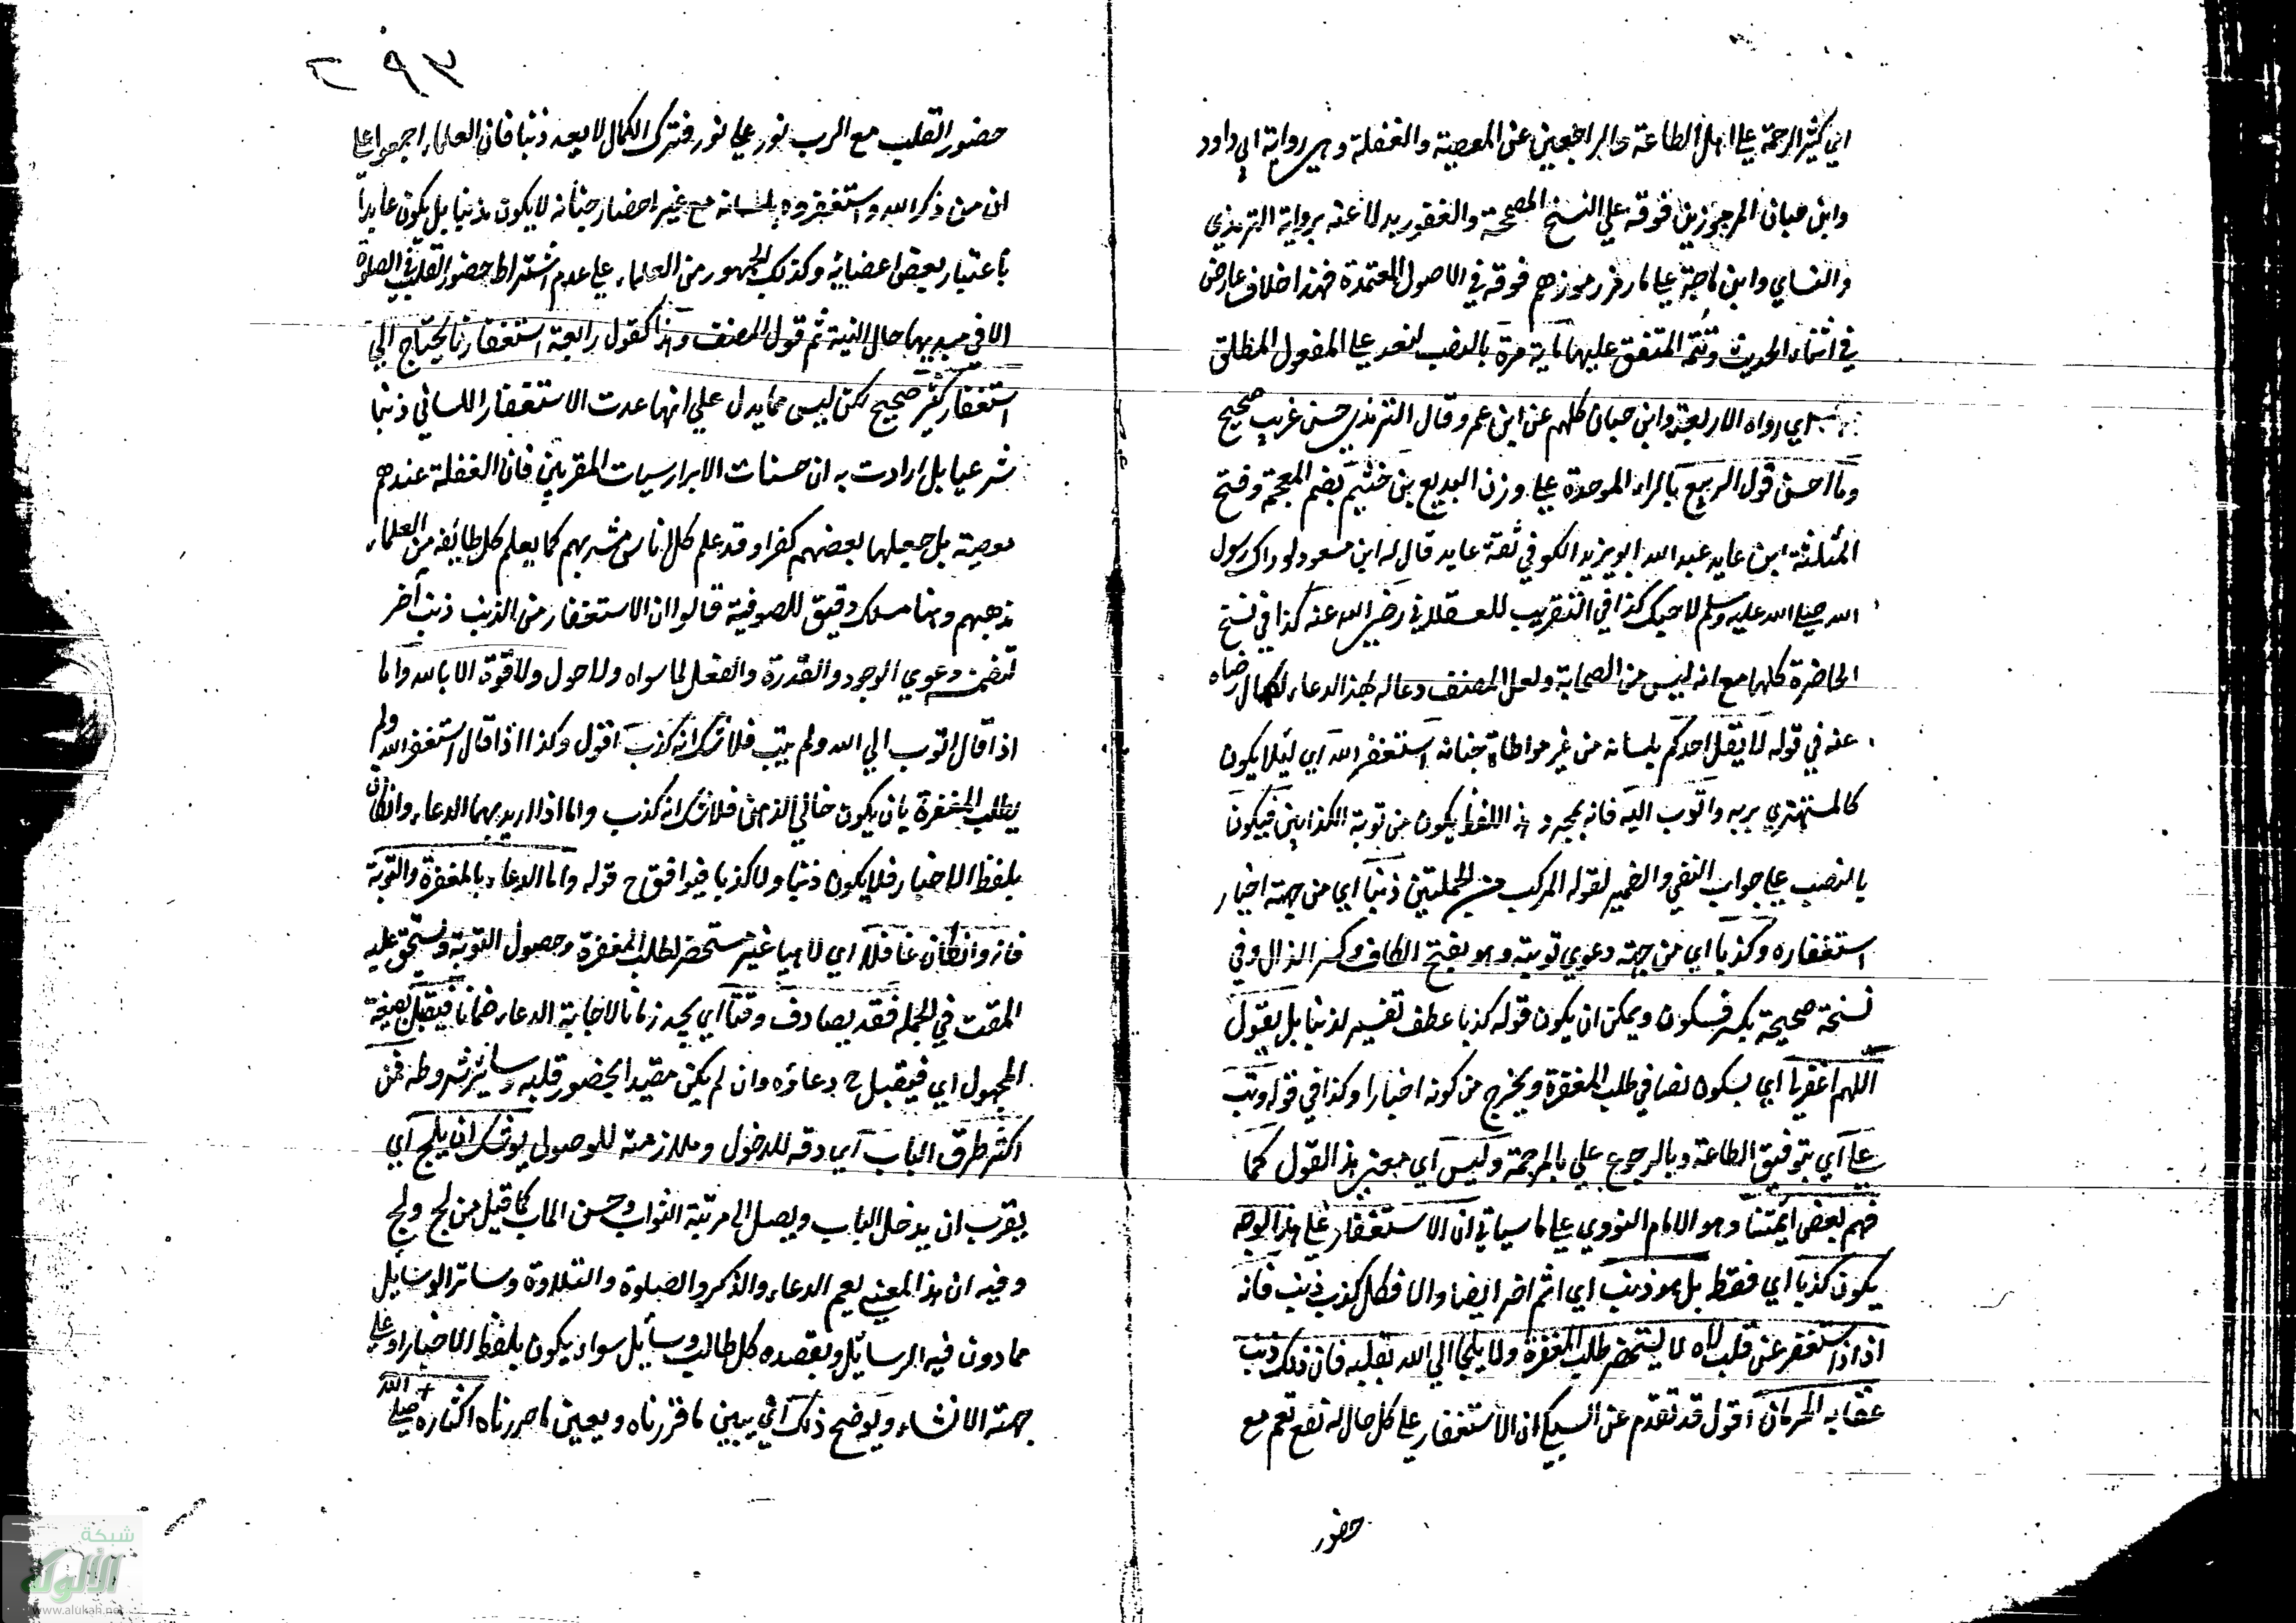 اي كثير الرحمة علي اهل الطاعة والراجعين عن المعصية والغفلة وهي رواية ابي داود
وابن حبان المرموزين فوقه علي النسخ المصححة والغفور بدلا عنه برواية الترمذي
والنساي وابن ماجة علي ما رمز رموزهم فوقه في الاصول المعتمدة فهذا خلاف عارض
في اثناء الحديث وتتمة المتفق عليها ماية مرة بالنصب لنعد علي المفعول المطلق
اي رواه الاربعة وابن حبان كلهم عن ابن عمر وقال الترمذي حسن غريب صحيح
وما احسن قول الربيع بالراء الموحدة علي وزن البديع بن خثيم بضم المعجمة وفتح
المثلثة ابن عايد عبد الله ابو يزيد الكوفي ثقة عابد قال له ابن مسعود لو راك رسول
الله صلي الله عليه وسلم لاحبك كذا في التقريب للعسقلاني رضي الله عنه كذا في نسخ
الحاضرة كلها مع انه ليس من الصحابة ولعل المصنف دعا له بهذا الدعاء لكمال رضاه
عنه في قوله لا يقل احدكم بلسانه من غير مواطاة جنانه استغفر الله اي ليلا يكون
كالمستهزي بربه واتوب اليه فانه بمجرد هذا اللفظ يكون من توبة الكذابين فيكون
بالنصب علي جواب النفي والضمير لقوله المركب من الجملتين ذنبا اي من جهة اخبار
استغفاره وكذبا اي من جهة دعوي توبته وهو بفتح الكاف وكسر الذال وفي
نسخة صحيحة بكسر فسكون ويمكن ان يكون قوله كذبا عطف تفسير لذنبا بل يقول
اللهم اغفر لي اي ليكون نصا في طلب المغفرة ويخرج من كونه اخبارا وكذا في قوله وتب
علي اي بتوفيق الطاعة وبالرجوع علي بالرحمة وليس اي معني هذا القول كما
فهم بعض ايمتنا وهو الامام النووي علي ما سياتي ان الاستغفار علي هذا الوجه
يكون كذبا اي فقط بل هو ذنب اي اثم اخر ايضا والا فكل كذب ذنب فانه
اذا استغفر عن قلب لاه لا يستحضر طلب المغفرة ولا يلجا الي الله بقلبه فان ذلك ذنب
عقابه الحرمان اقول قد تقدم عن السبكي ان الاستغفار علي كل حال له نفع نعم مع
حضور
حضور القلب مع الرب نور علي نور فترك الكمال لا يعد ذنبا فان العلماء اجمعوا علي
ان من ذكر الله واستغفره بلسانه مع غير احضار جنانه لا يكون مذنبا بل يكون عابدا
باعتبار بعض اعضايه وكذلك الجمهور من العلماء علي عدم اشتراط حضور القلب في الصلوة
الا في مبدئها حال النية ثم قول المصنف وهذا كقول رابعة استغفارنا يحتاج الي
استغفار كثير صحيح لكن ليس مما يدل علي انها عدت الاستغفار اللساني ذنبا
شرعيا بل ارادت به ان حسنات الابرار سيات المقربين فان الغفلة عندهم
معصية بل جعلها بعضهم كفرا وقد علم كل اناس مشربهم كما يعلم كل طائفة من العلماء
مذهبهم وهنا مسلك دقيق للصوفية قالوا ان الاستغفار من الذنب ذنب آخر
لتضمنه دعوي الوجود والقدرة والفعل لما سواه ولا حول ولا قوة الا بالله واما
اذا قال اتوب الي الله ولم يتب فلا شك انه كذب اقول وكذا اذا قال استغفر الله ولم
يطلب المغفرة بان يكون خالي الذهن فلا شك انه كذب واما اذا اريد بهما الدعاء وان كان
بلفظ الاخبار فلا يكون ذنبا ولا كذبا فيوافق ح قوله واما الدعاء بالمغفرة والتوبة
فانه وان كان غافلا اي لاهيا غير مستحضر لطلب المغفرة وحصول التوبة ويستحق عليه
المقت في الجملة فقد يصادف وقتا اي يجد زمانا لاجابة الدعاء ضمانا فيقبل بصيغة
المجهول اي فيقبل ح دعاؤه وان لم يكن مقيدا بحضور قلبه وسائر شروطه فمن
اكثر طرق الباب اي دقه للدخول وملازمته للوصول يوشك ان يلج اي
يقرب ان يدخل الباب ويصل الي مرتبة الثواب وحسن الماب كما قيل من لج ولج
وفيه ان هذا المعني يعم الدعاء والذكر والصلوة والتلاوة وسائر الوسايل
مما دون فيه الرسائل ويقصده كل طالب وسائل سواء يكون بلفظ الاخبار او علي
جهة الانشاء ويوضح ذلك اي يبين ما قررناه ويعين ما حررناه اكثاره صلي الله
شبكة
الألوكة
www.alukah.net